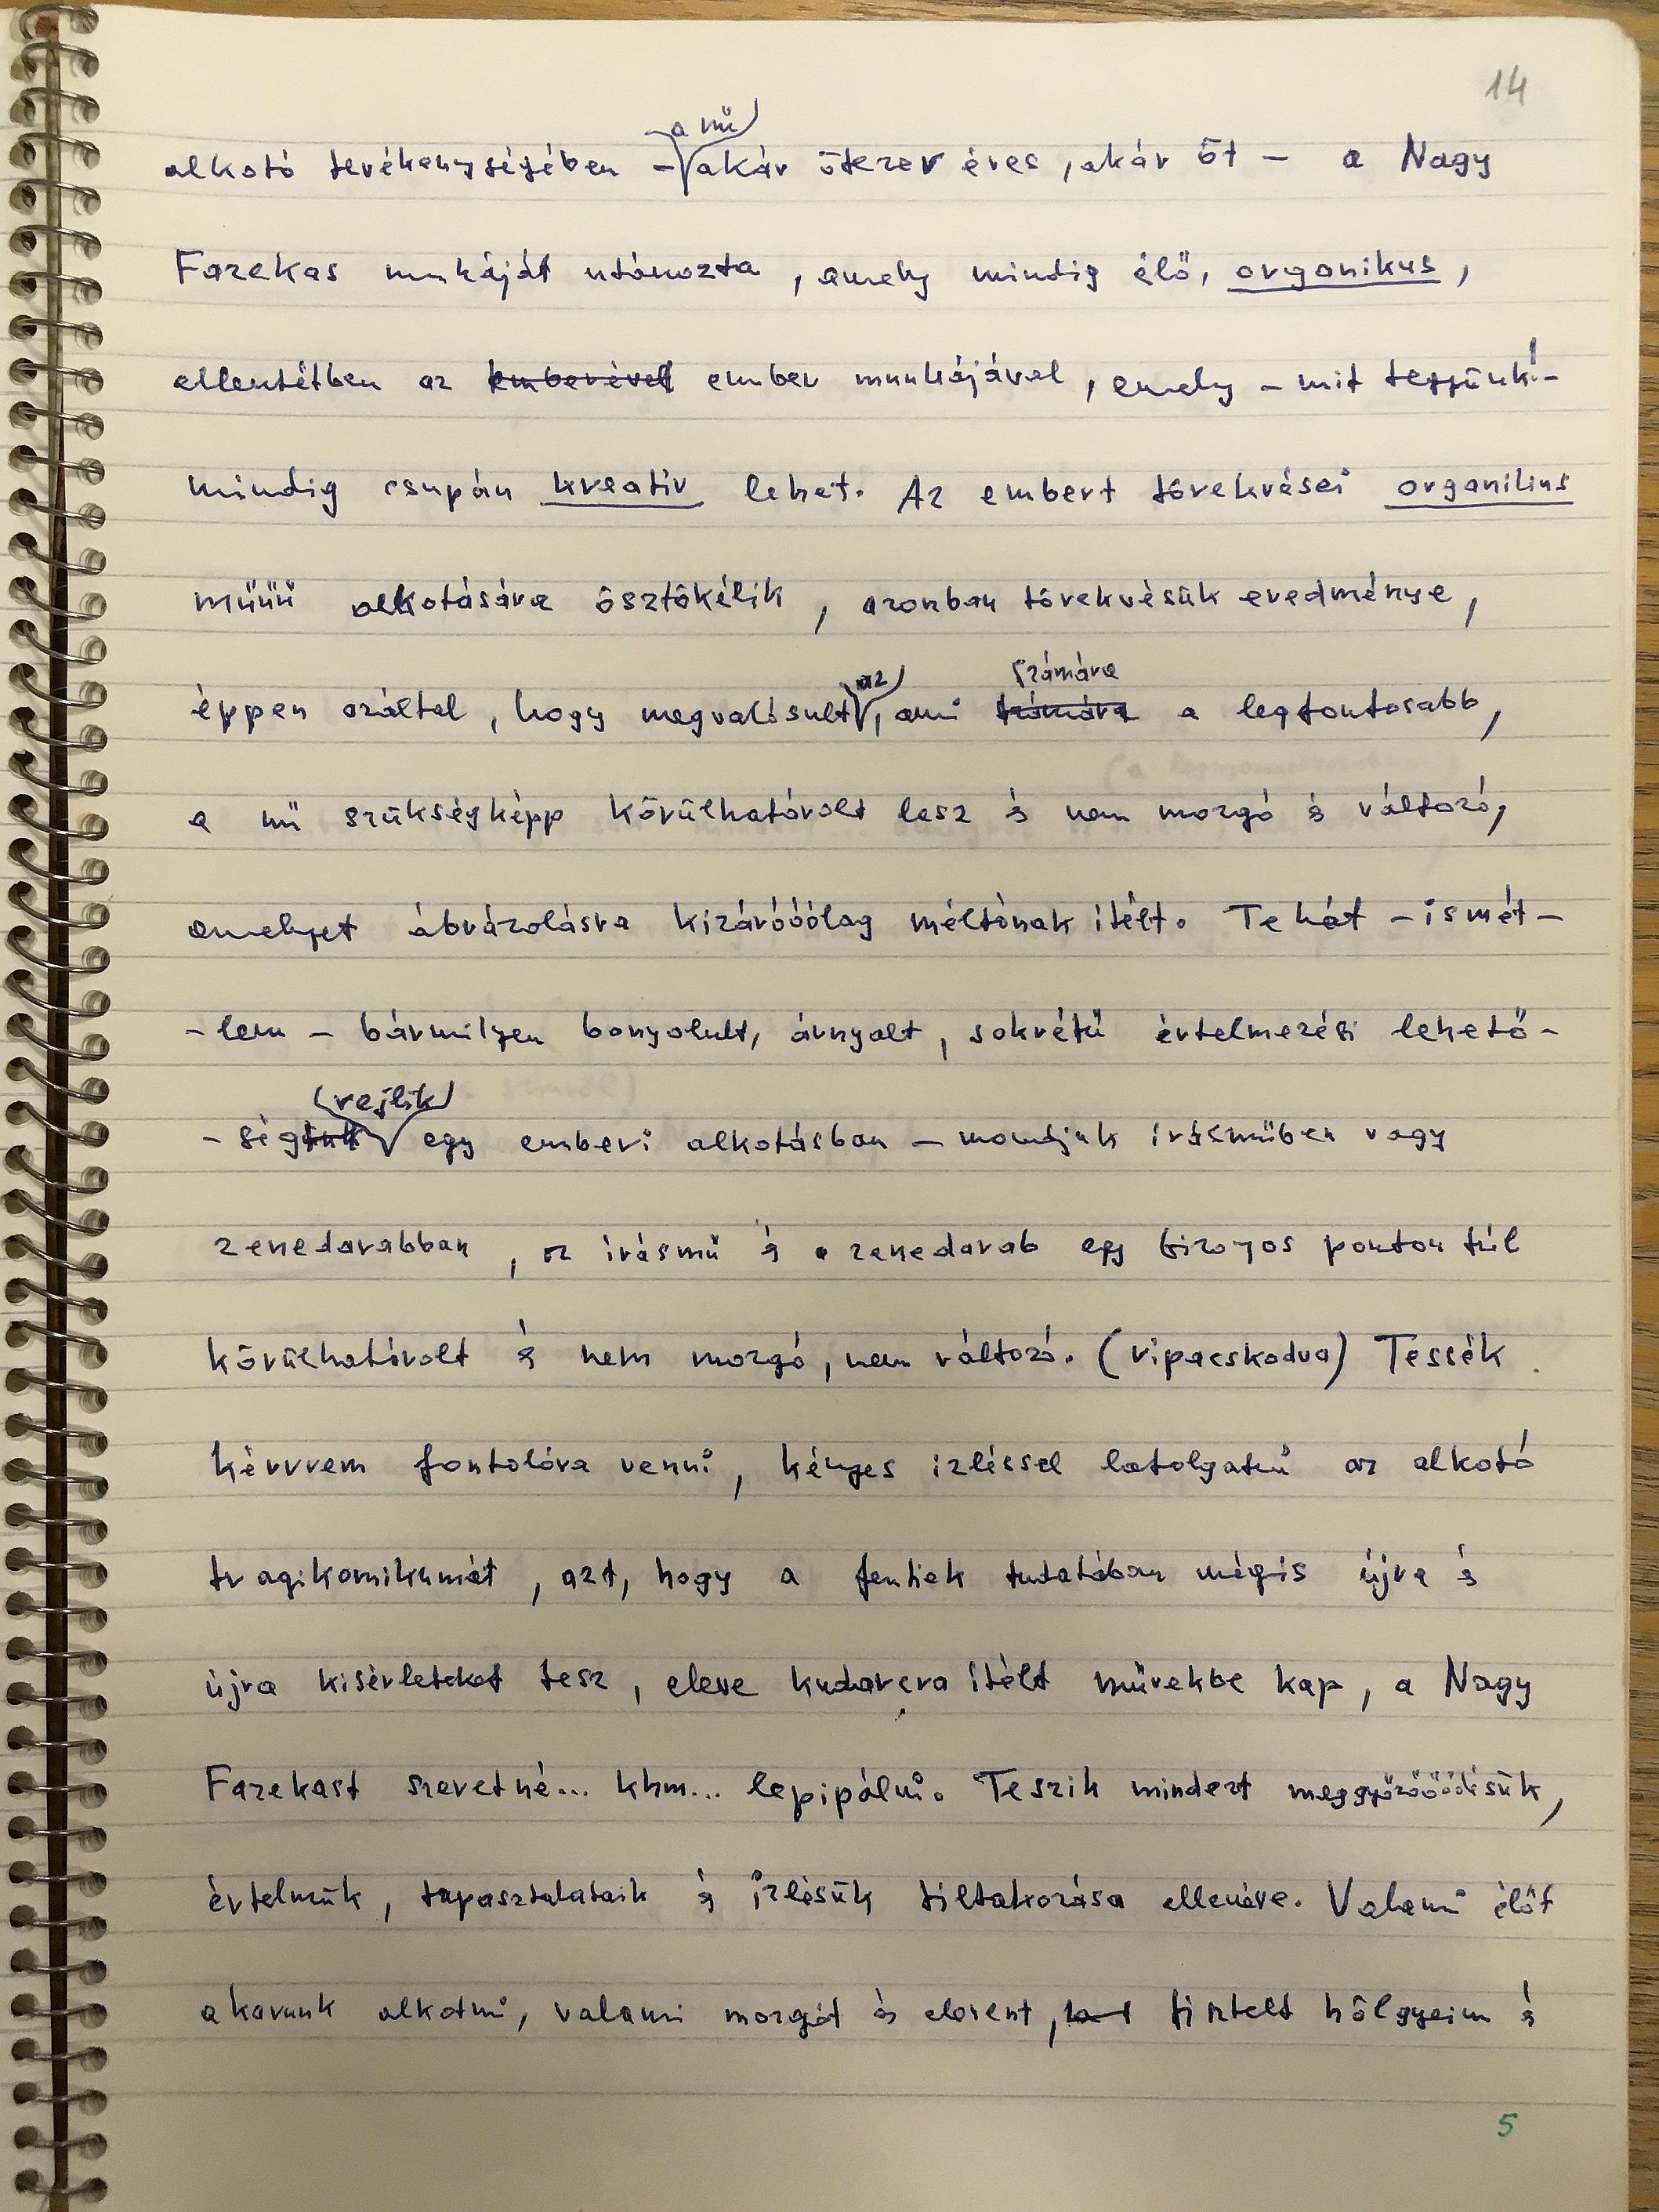 14
alkotó tevékenységében – a mű akár ötezer éves, akár öt – a Nagy
Fazekas munkáját utánozta, amely mindig élő, organikus,
ellentétben az emberével ember munkájával, amely – mit tegyünk! –
mindig csupán kreatív lehet. Az embert törekvései organikus
műűű alkotására ösztökélik, azonban törekvésük eredménye,
éppen azáltal, hogy megvalósult az, ami számára a legfontosabb,
a mű szükségképp körülhatárolt lesz és nem mozgó és változó,
amelyet ábrázolásra kizáróóólag méltónak ítélt. Tehát – ismét-
-lem – bármilyen bonyolult, árnyalt, sokrétű értelmezési lehető-
-ség rejlik egy emberi alkotásban – mondjuk írásműben vagy
zenedarabban, az írásmű és a zenedarab egy bizonyos ponton túl
körülhatárolt és nem mozgó, nem változó. (ripacskodva) Tessék
kérrrem fontolóra venni, kényes ízléssel latolgatni az alkotó
tragikomikumát, azt, hogy a fentiek tudatában mégis újra és
újra kisérleteket tesz, eleve kudarcra ítélt művekbe kap, a Nagy
Fazekast szeretné... khm... lepipálni. Teszik mindezt meggyőzőőődésük,
értelmük, tapasztalataik és ízlésük tiltakozása ellenére. Valami élőt
akarunk alkotni, valami mozgót és elevent, tisztelt hölgyeim és
5